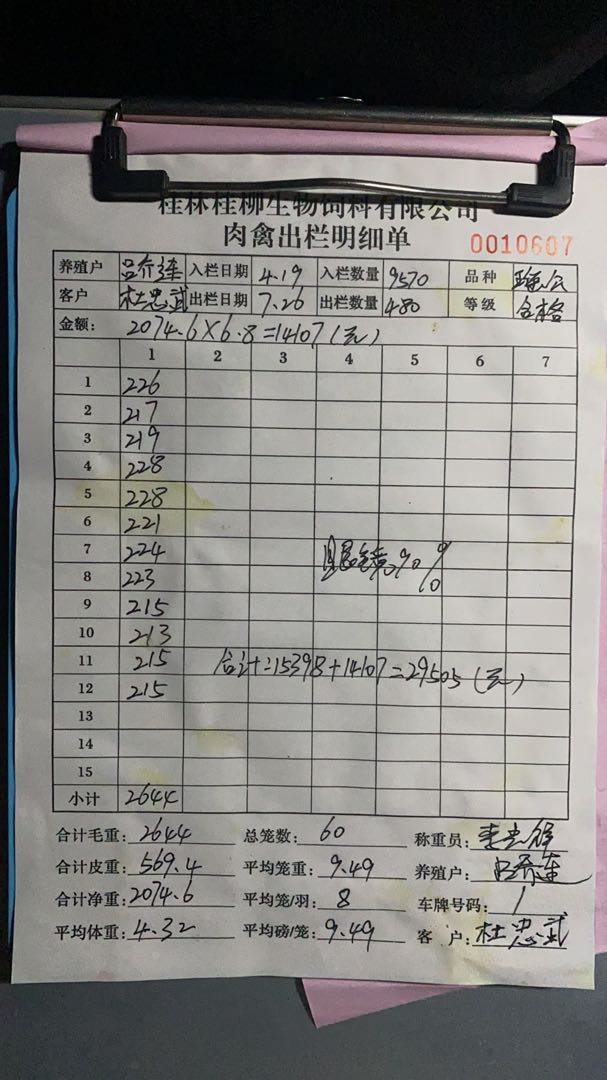 桂林桂柳生物饲料有限公司
肉禽出栏明细单
0010607
养殖户 吕乔连 入栏日期 4.19 入栏数量 9570 品种
客户 杜忠武 出栏日期 7.26 出栏数量 480 等级 合格
金额: 2074.6×6.8=14107(元)
1 2 3 4 5 6 7
1 226
2 217
3 219
4 228
5 228
6 221
7 224
8 223
9 215
10 213
11 215 合计:15398+14107=29505(元)
12 215
13
14
15
小计 2644
合计毛重: 2644 总笼数: 60 称重员:
合计皮重: 569.4 平均笼重: 9.49 养殖户: 吕乔连
合计净重: 2074.6 平均笼/羽: 8 车牌号码: /
平均体重: 4.32 平均磅/笼: 9.49 客 户: 杜忠武